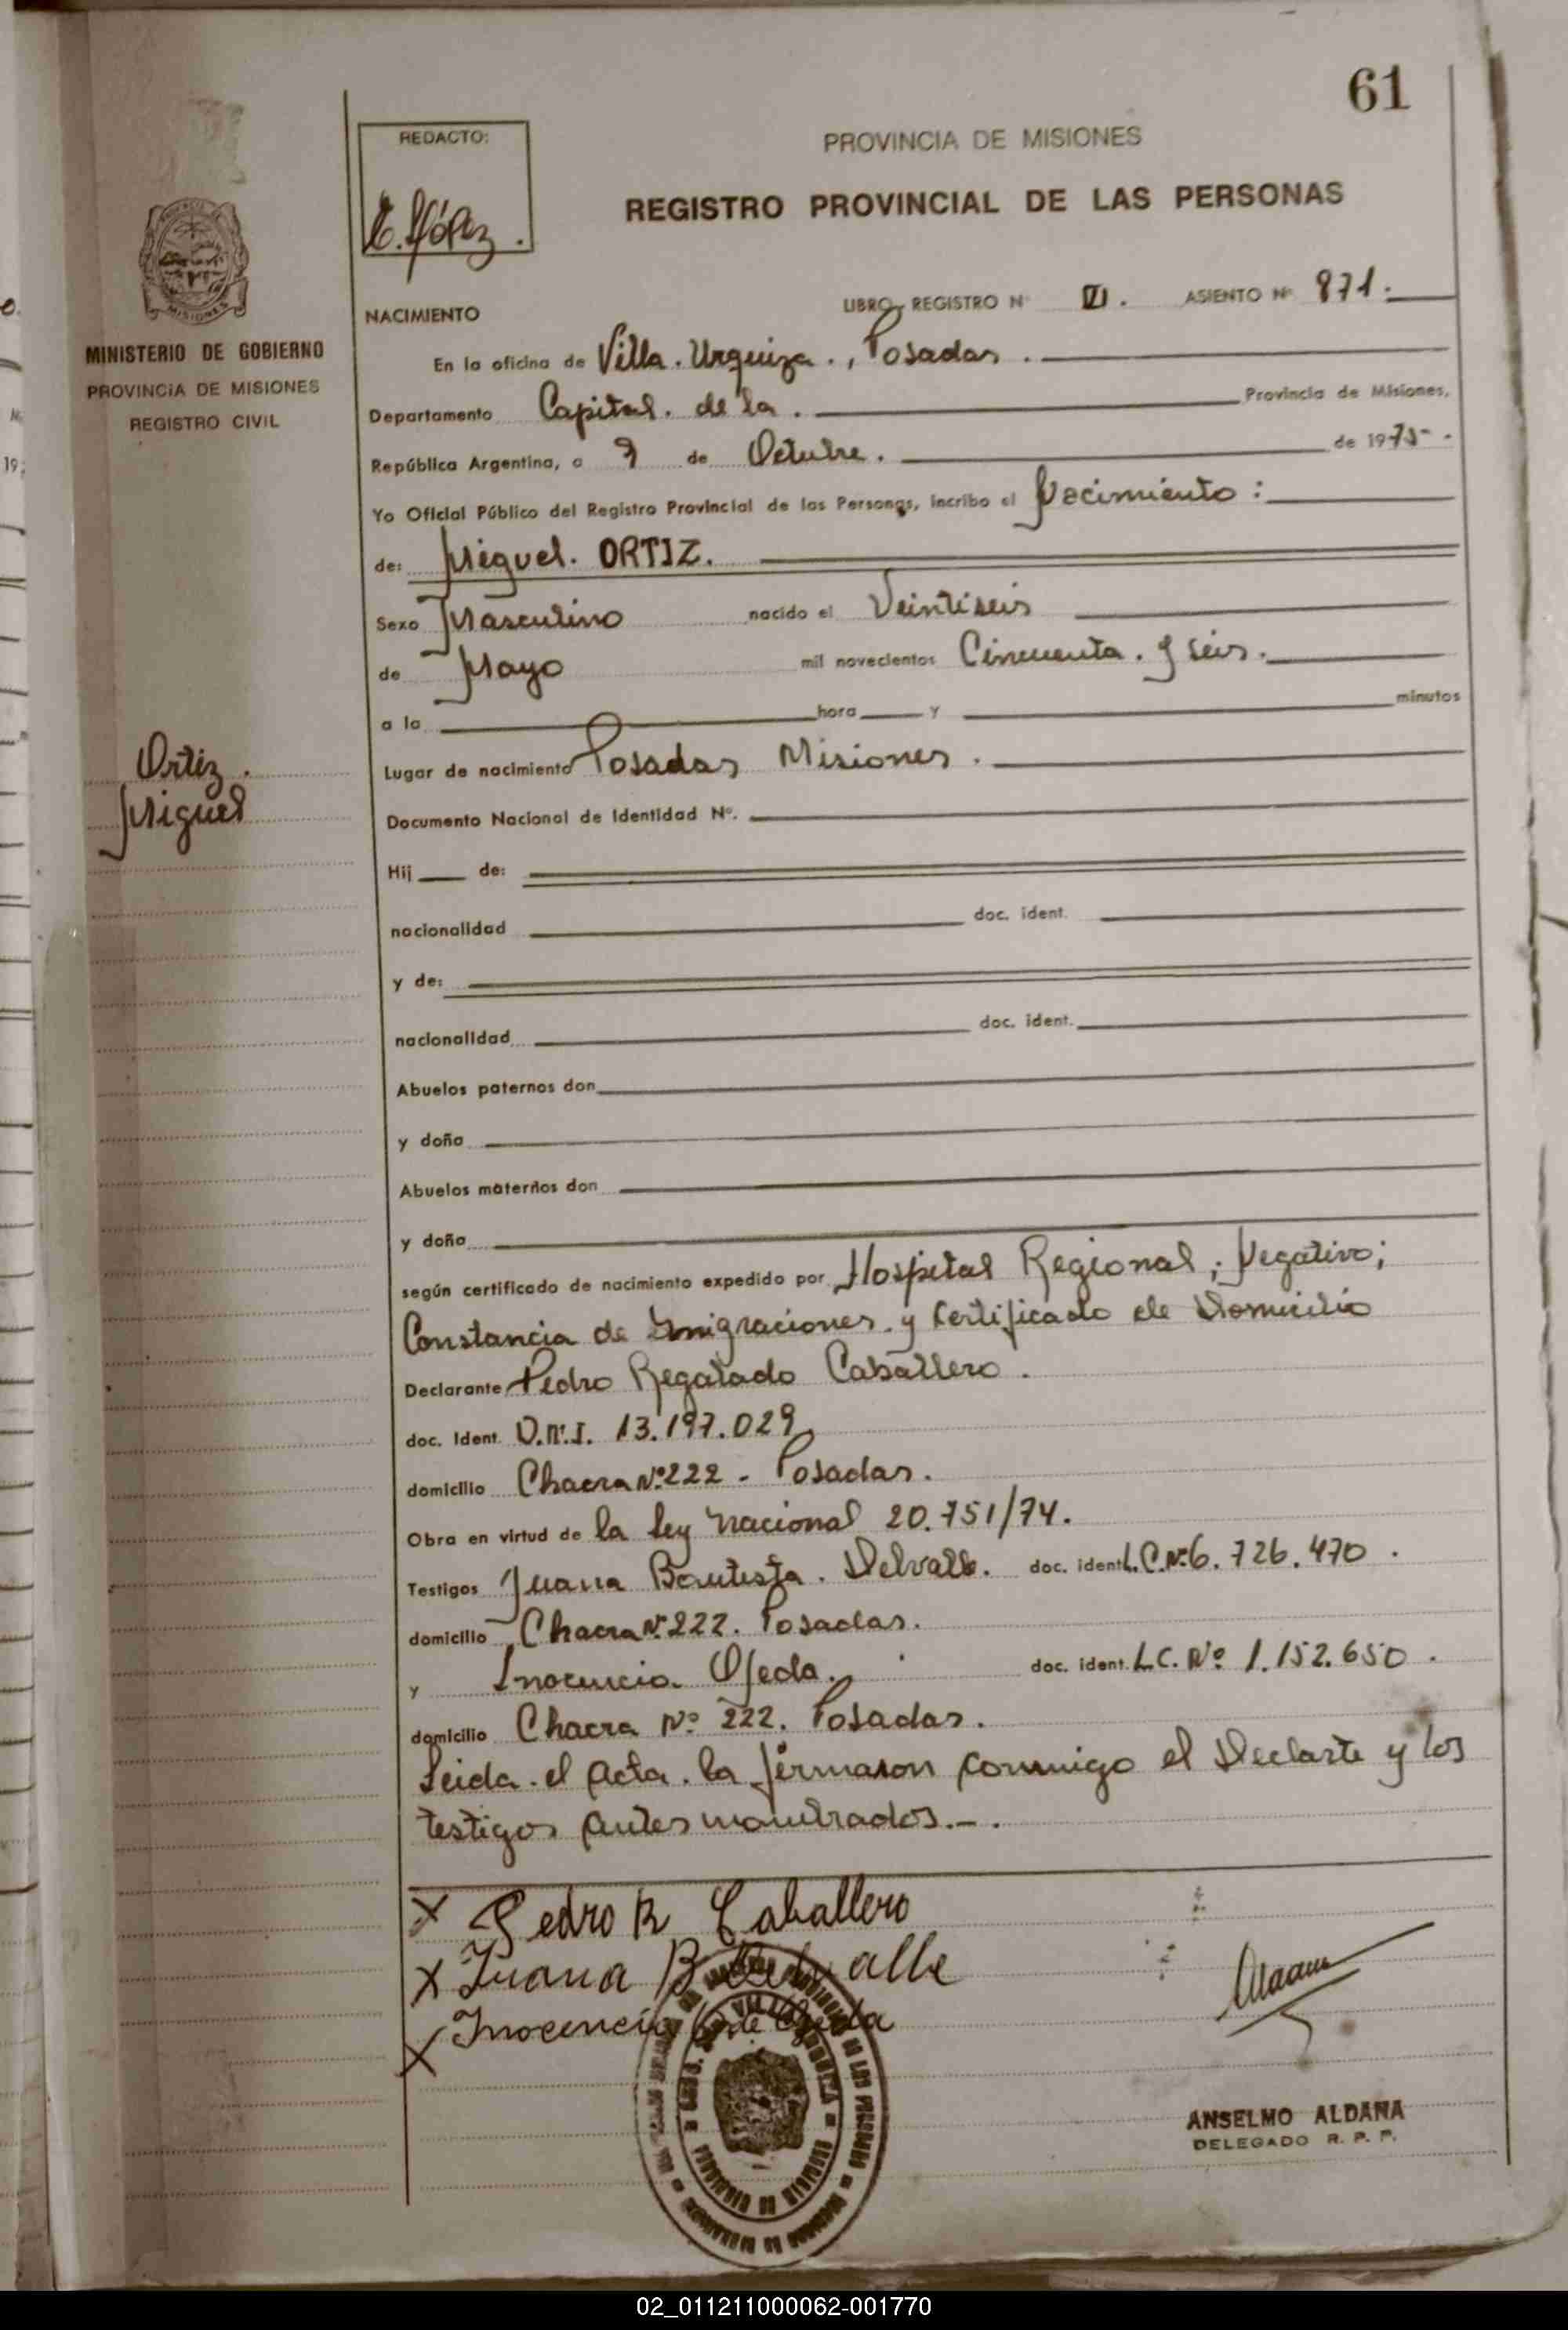 61
REDACTO:
PROVINCIA DE MISIONES
REGISTRO PROVINCIAL DE LAS PERSONAS
MINISTERIO DE GOBIERNO
PROVINCIA DE MISIONES
REGISTRO CIVIL
NACIMIENTO LIBRO REGISTRO N ASIENTO Nº 871.
En la oficina de Villa. Urquiza., Posadas.
Departamento Capital. de la. Provincia de Misiones,
República Argentina, a 7 de Octubre. de 1975-.
Yo Oficial Público del Registro Provincial de las Personas, incribo el Nacimiento:
de: Miguel. ORTIZ.
Sexo Masculino nacido el Veintiseis
de Mayo mil novecientos Cincuenta. y seis.
a la hora y minutos
Ortiz.
Miguel
Lugar de nacimiento Posadas Misiones.
Documento Nacional de Identidad Nº.
Hij de:
nacionalidad doc. ident.
y de:
nacionalidad doc. ident.
Abuelos paternos don
y doña
Abuelos maternos don
y doña
según certificado de nacimiento expedido por Hospital Regional; Negativo;
Constancia de Imigraciones. y Certificado de Domicilio
Declarante Pedro Regalado Caballero.
doc. Ident. D.N.I. 13.197.029
domicilio Chacra Nº222 - Posadas.
Obra en virtud de la Ley Nacional 20.751/74.
Testigos Juana Bautista. Delvalle. doc. ident. L.C.Nº6.726.470.
domicilio Chacra Nº222. Posadas.
y Inocencia Ojeda. doc. ident. L.C. Nº 1.152.650.
domicilio Chacra Nº 222. Posadas.
Leida. el Acta. la firmaron conmigo el Declarte y los
testigos antes nombrados.-.
X Pedro R Caballero
X Juana B Delvalle
X Inocencia de Ojeda
ANSELMO ALDANA
DELEGADO R. P. P.
02_011211000062-001770